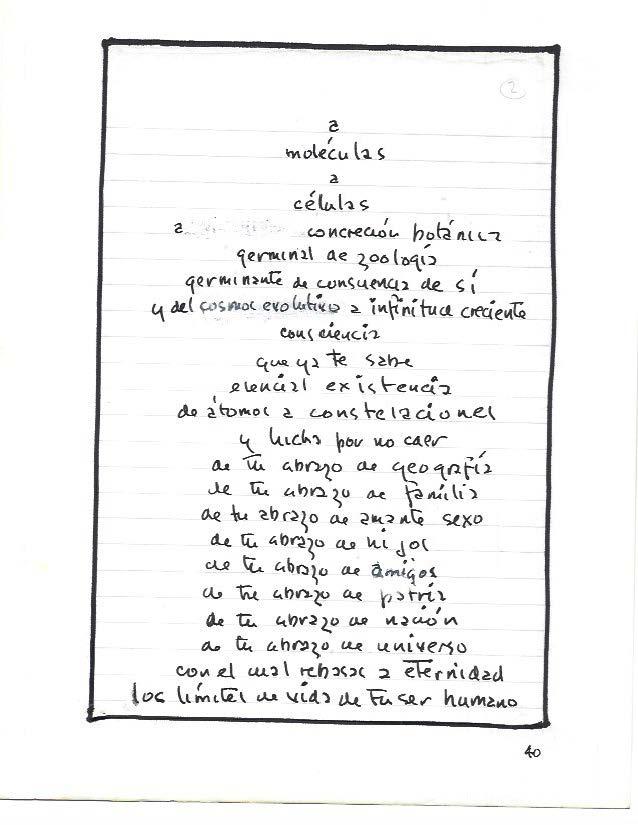 2
a
moléculas
a
células
a concreción botánica
germinal de zoología
germinante de consciencia de sí
y del cosmos evolutivo a infinitud creciente
consciencia
que ya te sabe
esencial existencia
de átomos a constelaciones
y lucha por no caer
de tu abrazo de geografía
de tu abrazo de família
de tu abrazo de amante sexo
de tu abrazo de hijos
de tu abrazo de amigos
de tu abrazo de patria
de tu abrazo de nación
de tu abrazo de universo
con el cual rebasas a eternidad
los límites de vida de tu ser humano
40